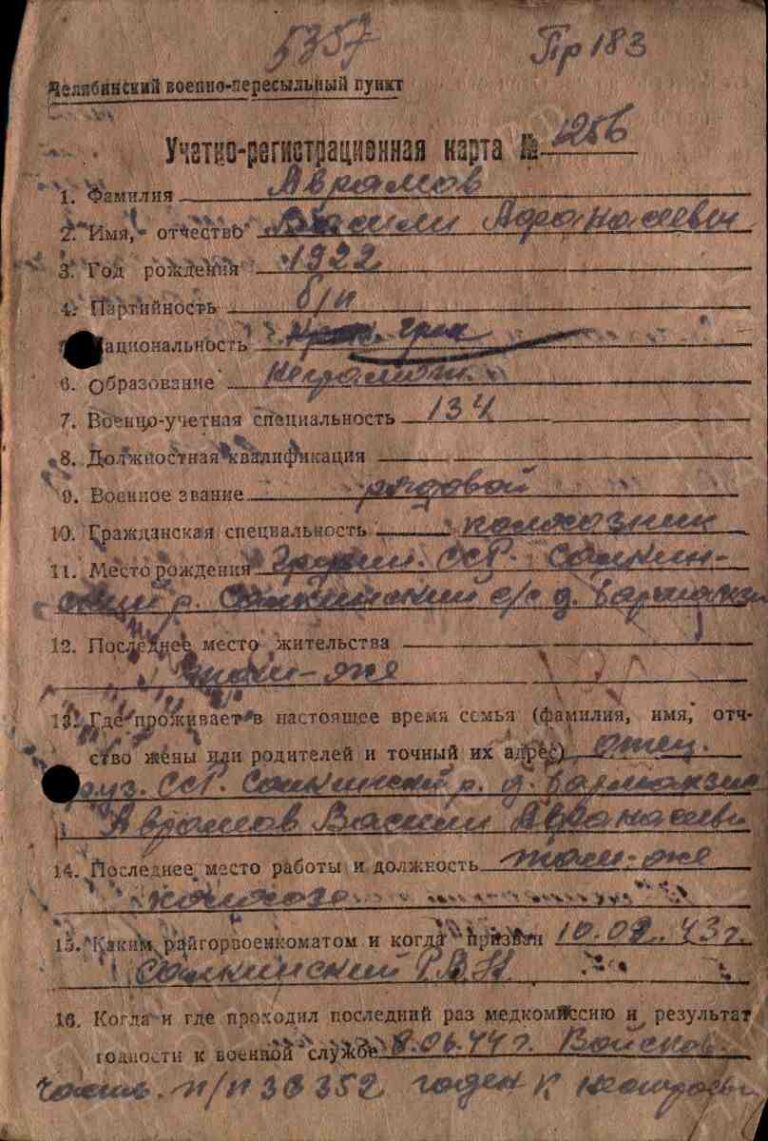 5357 Пр 183
Челябинский военно-пересыльный пункт
Учетно-регистрационная карта № 1256
1. Фамилия Аврамов
2. Имя, отчество Васили Афанасевич
3. Год рождения 1922
4. Партийность б/п
ациональность грек
6. Образование неграмотн.
7. Военно-учетная специальность 134
8. Должностная квалификация
9. Военное звание рядовой
10. Гражданская специальность колхозник
11. Место рождения Грузин. ССР. Салкин-
ский р. Салкинский с/с д.
12. Последнее место жительства
там-же
13. Где проживает в настоящее время семья (фамилия, имя, отч-
ство жены или родителей и точный их адрес) отец.
руз. ССР. Салкинский р. д.
Аврамов Васили Афанасеви
14. Последнее место работы и должность там-же
колхозе
15. Каким райгорвоенкоматом и когда призван 10.02.43 г.
Салкинский Р.В.К
16. Когда и где проходил последний раз медкомиссию и результат
годности к военной службе 8.06.44 г. Войсков.
часть. п/п 36352 годен к